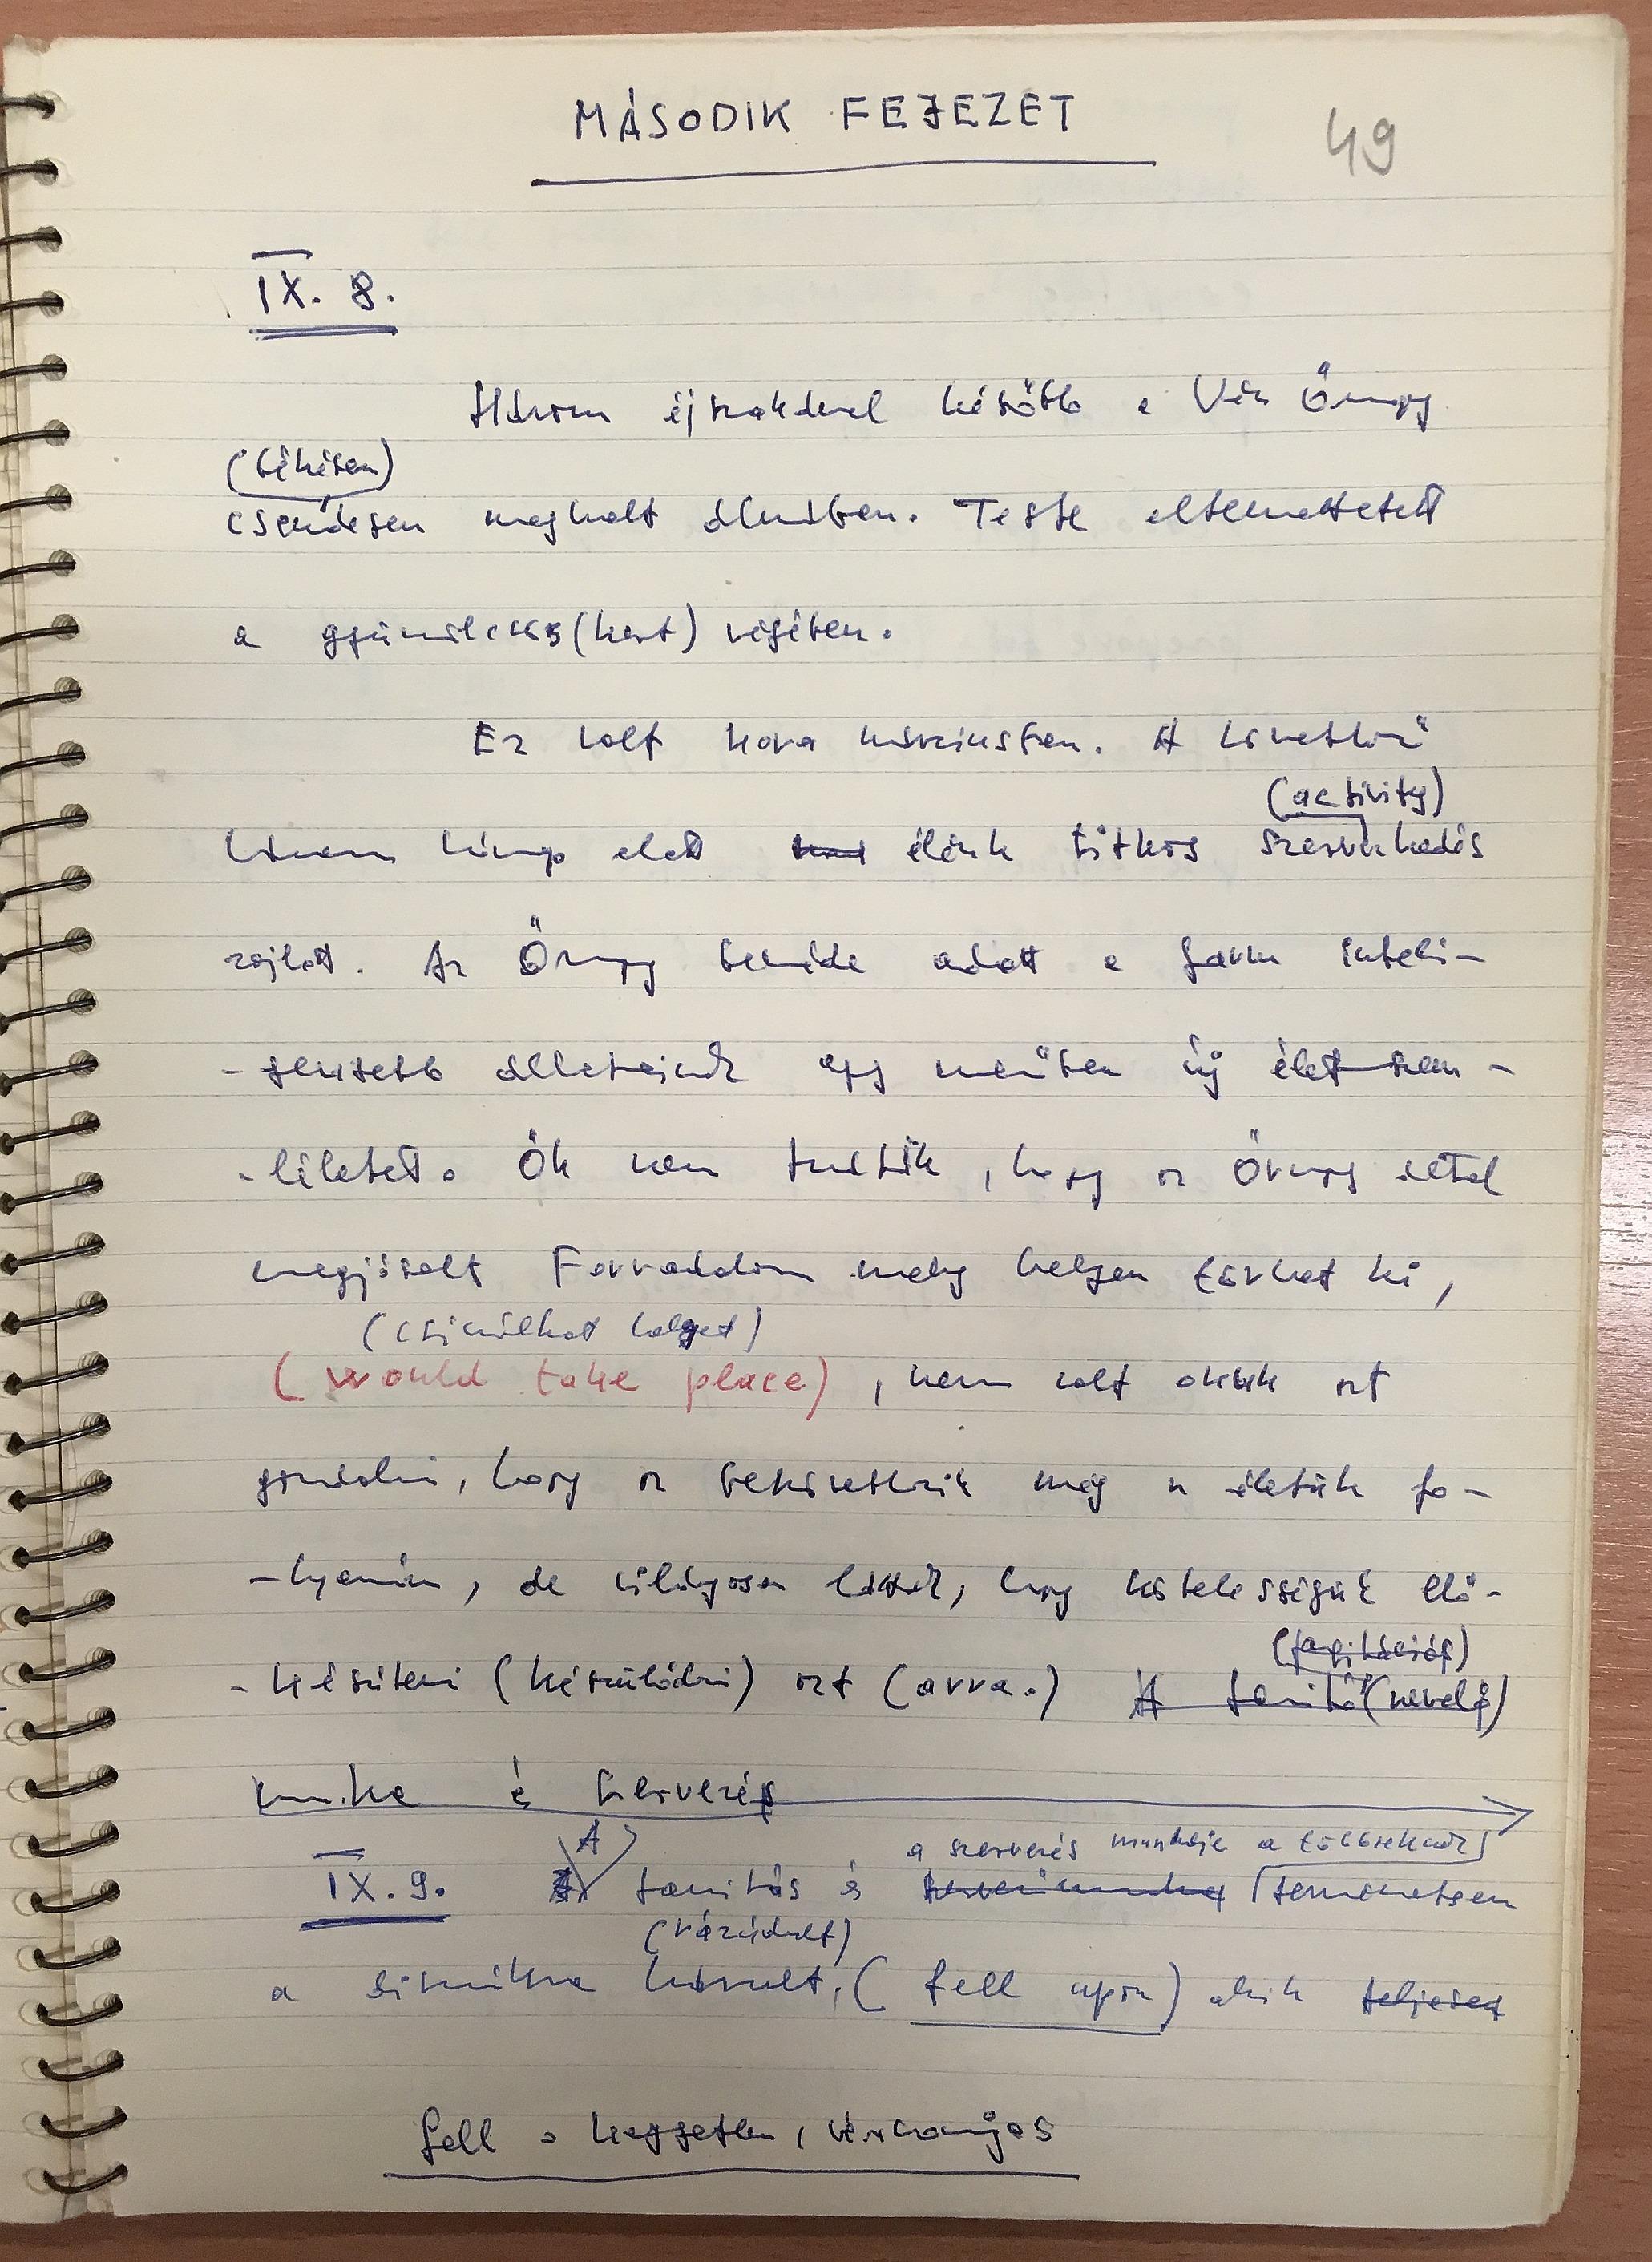 MÁSODIK FEJEZET
49
IX. 8.
Három éjszakával később a Vén Őrnagy
(békésen)
csendesen meghalt álmában. Teste eltemettetett
a gyümölcsös(kert) végében.
Ez volt kora márciusban. A következő
(activity)
három hónap alatt élénk titkos szervezkedés
zajlott. Az Őrnagy beszéde adott a farm inteli-
-gensebb állatainak egy merőben új életszem-
-léletet. Ők nem tudták, hogy az Őrnagy által
megjósolt Forradalom mely helyen törhet ki,
(csinálhat helyet)
(would take place), nem volt okuk azt
gondolni, hogy az bekövetkezik még az életük fo-
-lyamán, de világosan látták, hogy kötelességük elő-
-készíteni (készülődni) azt (arra.) A tanító (nevelő)
munka és szervezés
a szervezés munkája a többieknek
IX. 9. A tanítás és természetesen
(rázúdult)
a disznókra hárult, (fell upon) akik teljesen
fell = kegyetlen, vérszomjas